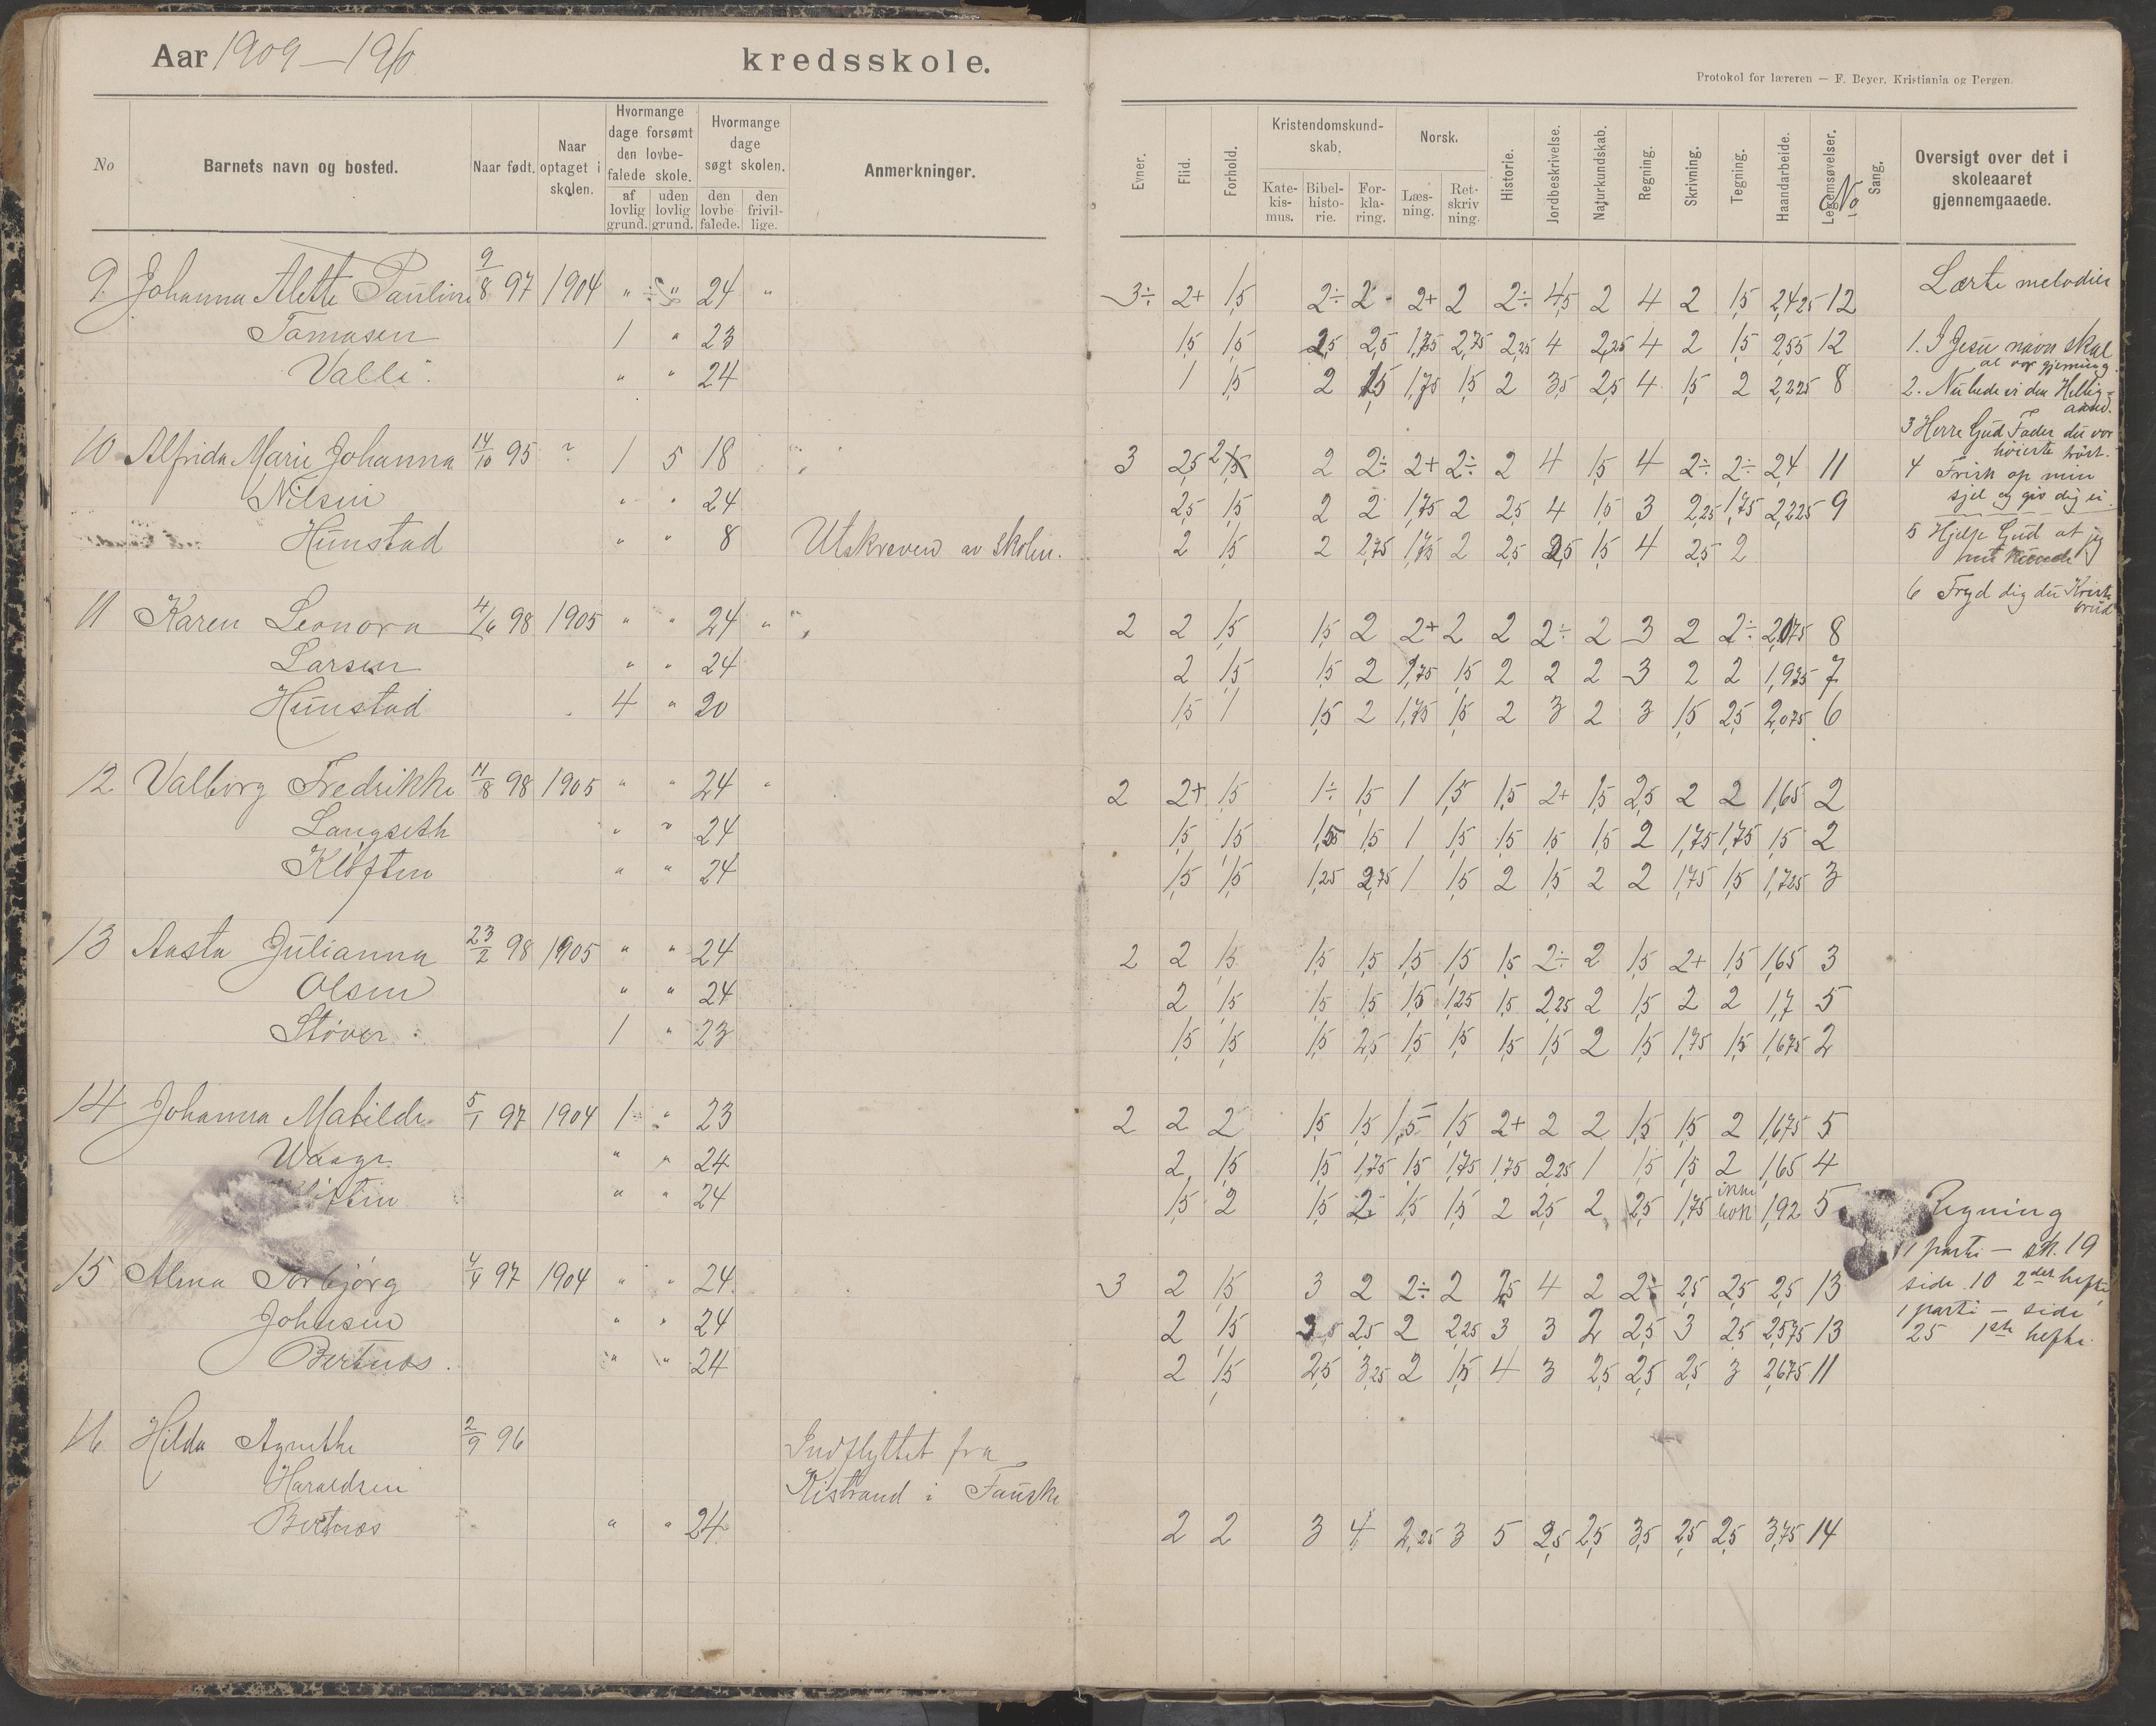 Aar 1909-1910 kredsskole.
Protokol for læreren — F. Beyer, Kristiania og Bergen.
No Barnets navn og bosted. Naar født. Naar optaget i skolen. Hvormange dage forsømt den lovbefalede skole. af lovlig grund. uden lovlig grund. Hvormange dage søgt skolen. den lovbefalede. den frivillige. Anmerkninger. Evner. Flid. Forhold. Kristendomskundskab. Katekismus. Bibelhistorie. Forklaring. Norsk. Læsning. Retskrivning. Historie. Jordbeskrivelse. Naturkundskab. Regning. Skrivning. Tegning. Haandarbeide. Legemsøvelser. No Sang. Oversigt over det i skoleaaret gjennemgaaede.
9. Johanna Alette Pauline 9/8 97 1904 " " 24 " 3÷ 2+ 1,5 2÷ 2 2+ 2 2÷ 4,5 2 4 2 1,5 2,425 12
Tomasen 1 " 23 1,5 1,5 2,5 2,5 1,75 2,75 2,25 4 2,25 4 2 1,5 2,55 12
Valli. " " 24 1 1,5 2 1,5 1,75 1,5 2 3,5 2,5 4 1,5 2 2,225 8
10 Alfrida Marie Johanna 14/10 95 ? 1 5 18 3 2,5 2 2 2÷ 2+ 2÷ 2 4 1,5 4 2÷ 2÷ 2,4 11
Nilsen " " 24 2,5 1,5 2 2 1,75 2 2,5 4 1,5 3 2,25 1,75 2,225 9
Hunstad " " 8 Utskreven av skolen. 2 1,5 2 2,75 1,75 2 2,5 2,5 1,5 4 2,5 2
11 Karen Leonora 4/6 98 1905 " " 24 " 2 2 1,5 1,5 2 2+ 2 2 2÷ 2 3 2 2÷ 2,075 8
Larsen " " 24 2 1,5 1,5 2 1,75 1,5 2 2 2 3 2 2 1,975 7
Hunstad 4 " 20 1,5 1 1,5 2 1,75 1,5 2 3 2 3 1,5 2,5 2,075 6
12 Valborg Fredrikke 11/8 98 1905 " " 24 " 2 2+ 1,5 1÷ 1,5 1 1,5 1,5 2+ 1,5 2,5 2 2 1,65 2
Langseth " " 24 1,5 1,5 1,25 1,5 1 1,5 1,5 1,5 1,5 2 1,75 1,75 1,5 2
Kløften " " 24 1,5 1,5 1,25 2,75 1 1,5 2 1,5 2 2 1,75 1,5 1,725 3
13 Aasta Julianna 23/2 98 1905 " " 24 2 2 1,5 1,5 1,5 1,5 1,5 1,5 2÷ 2 1,5 2+ 1,5 1,65 3
Olsen " " 24 2 1,5 1,5 1,5 1,5 1,25 1,5 2,25 2 1,5 2 2 1,7 5
Støver 1 " 23 1,5 1,5 1,5 2,5 1,5 1,5 1,5 1,5 2 1,5 1,75 1,5 1,675 2
14 Johanna Matilde 5/1 97 1904 1 " 23 2 2 2 1,5 1,5 1,5 1,5 2+ 2 2 1,5 1,5 2 1,675 5
Waage " " 24 2 1,5 1,5 1,75 1,5 1,75 1,75 2,25 1 1,5 1,5 2 1,65 4
" " 24 1,5 2 1,5 2 1,5 1,5 2 2,5 2 2,5 1,75 ikke bok 1,92 5
15 Alma Torbjørg 4/4 97 1904 " " 24 3 2 1,5 3 2 2÷ 2 2,5 4 2 2÷ 2,5 2,5 2,5 13
Johnsen " " 24 2 1,5 2,5 2 2,25 3 3 2 2,5 3 2,5 2,575 13
Bertnes. " " 24 2 1,5 2,5 3,25 2 1,5 4 3 2,5 2,5 2,5 3 2,675 11
16 Hilda Agnethe 2/9 96 Indflyttet fra
Haraldsen Kistrand i Fauske
Bertnes " " 24 2 2 3 4 2,25 3 5 2,5 2,5 3,5 2,5 2,5 3,75 14
Lærte melodier
1. I Jesu navn skal
al vor gjerning.
2. Nu bede vi den Hellig-
aand.
3 Herre Gud Fader du vor
høieste trøst.
4 Frisk op min
sjel og giv dig ei
5 Hjelp Gud at jeg
6 Fryd dig du Kristi
brud
Regning
1 parti — stk. 19
side 10 2det hefte,
1 parti — side
25 1ste hefte.